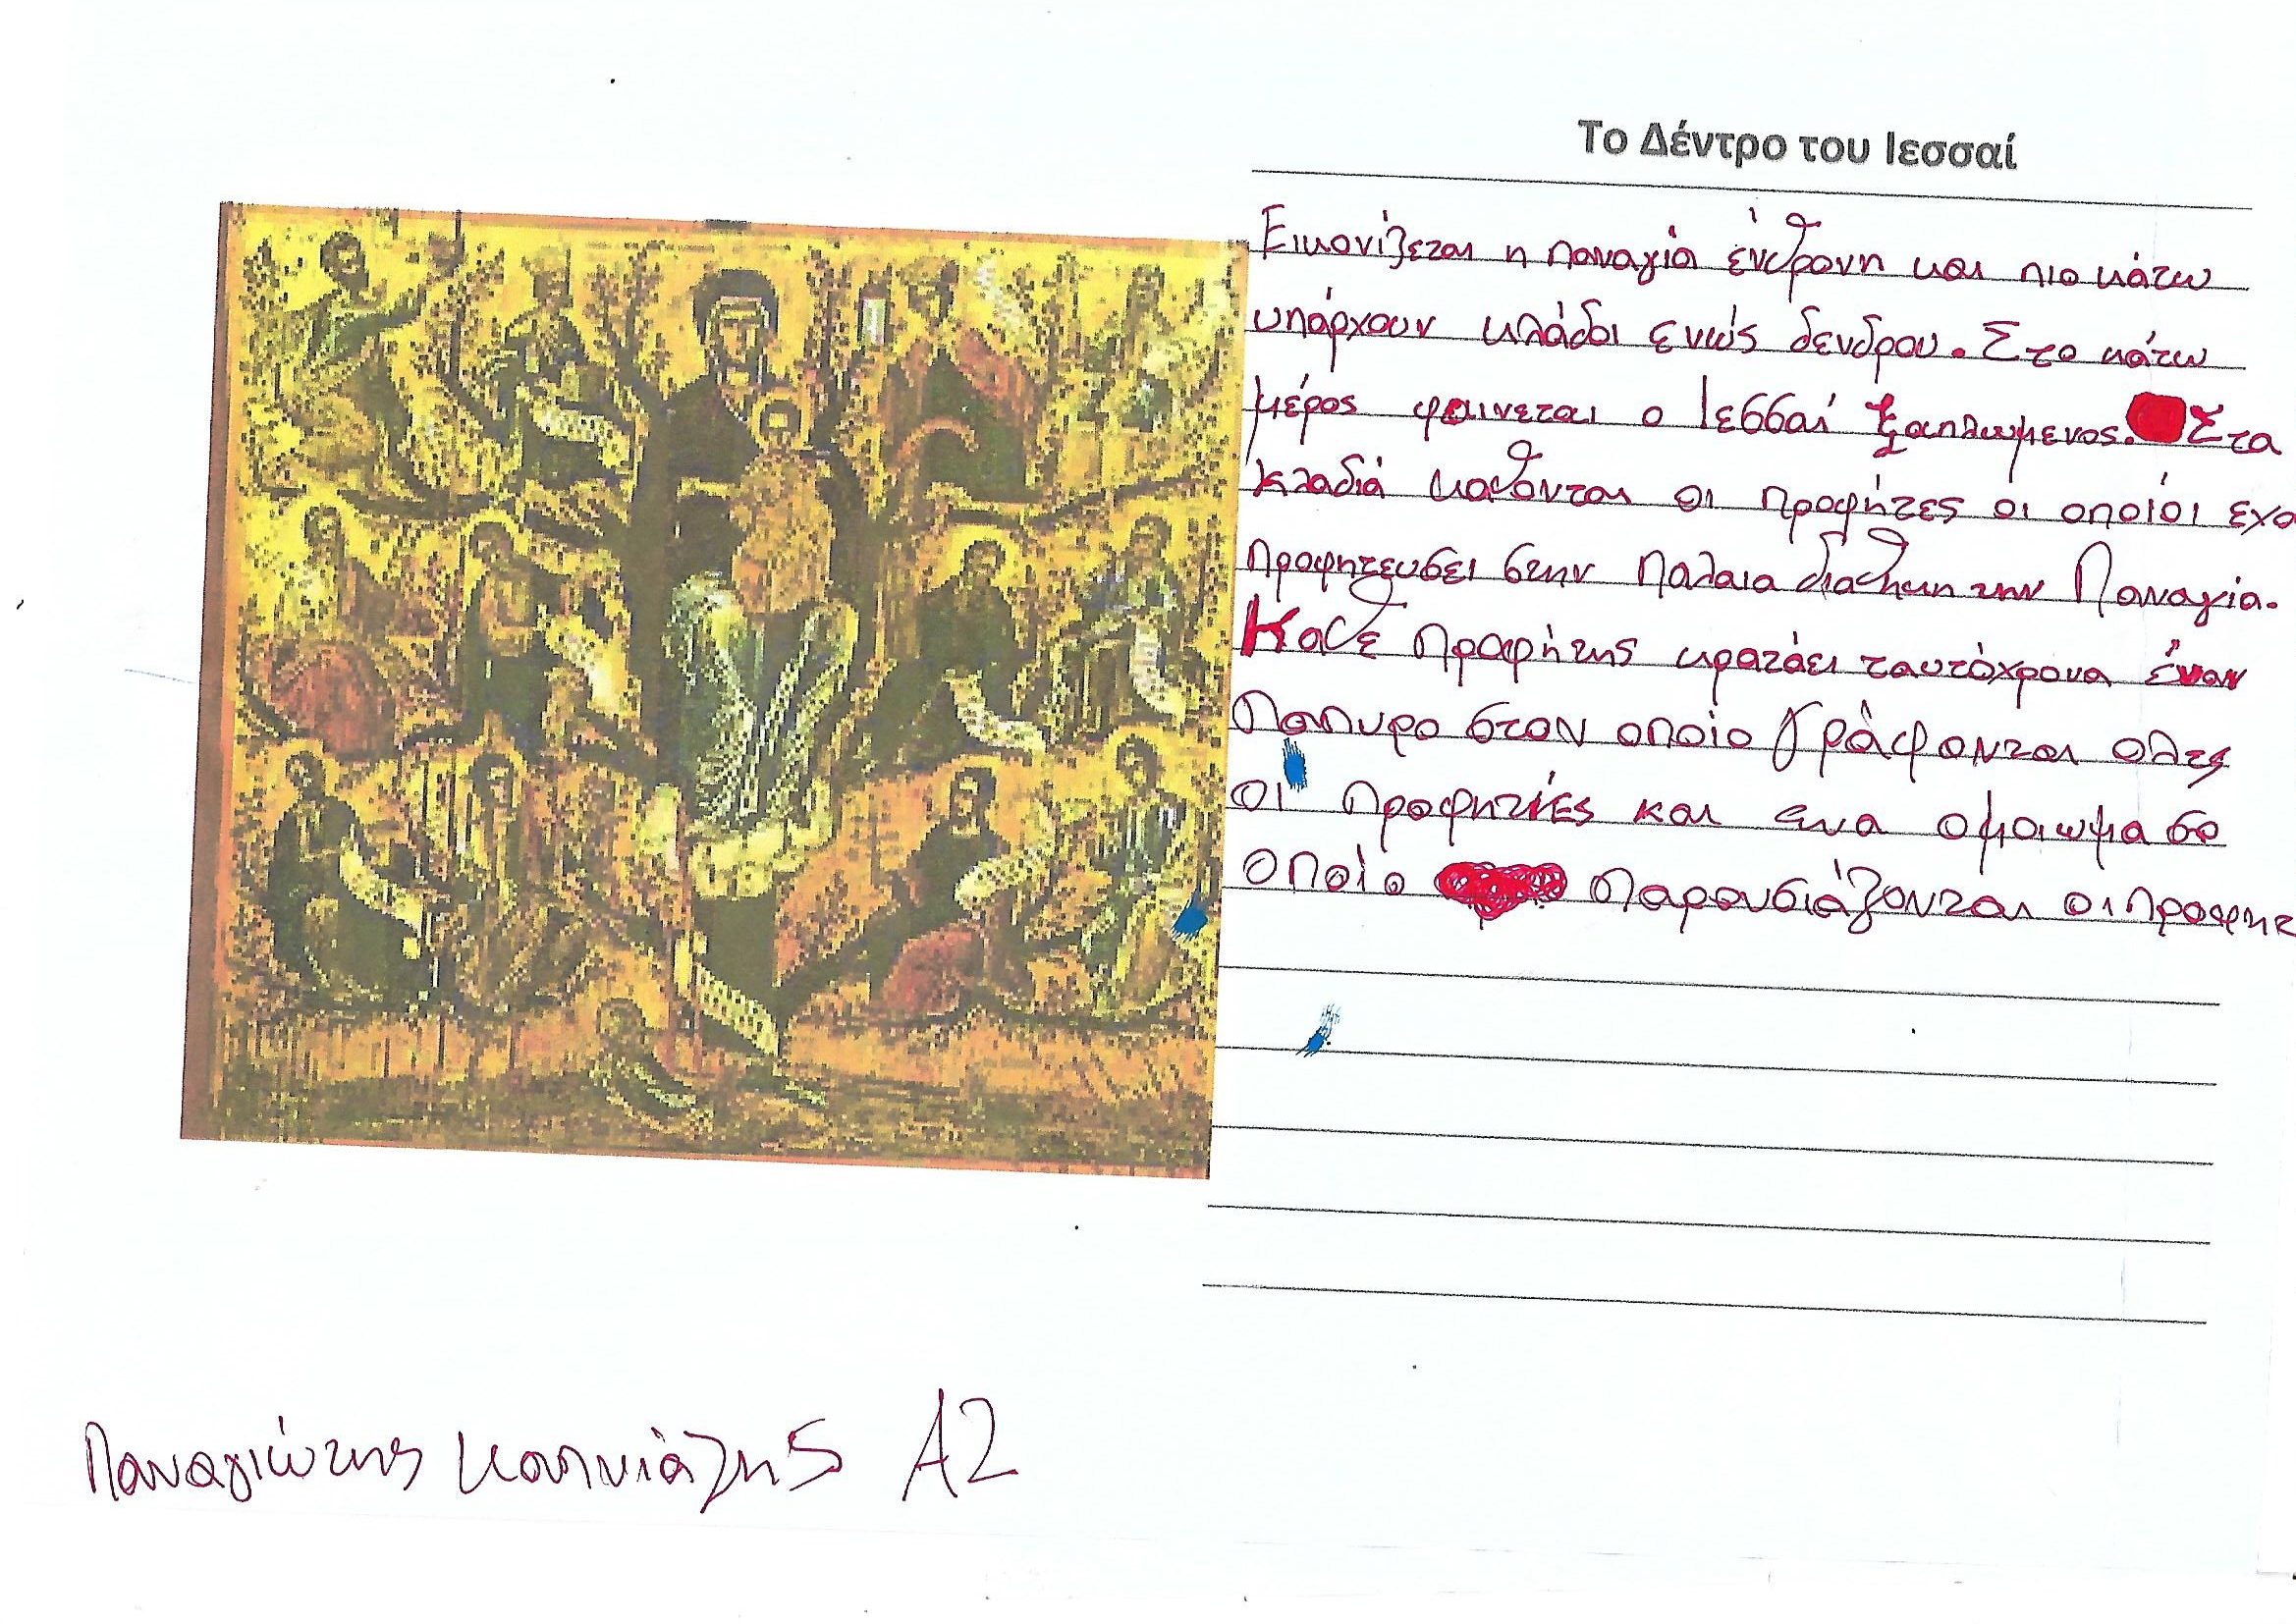 Το Δέντρο του Ιεσσαί
Εικονίζεται η Παναγία ένθρονη και πιο κάτω
υπάρχουν κλάδοι ενώς δενδρου. Στο κάτω
μέρος φαινεται ο Ιεσσαί ξαπλωμενος. Στα
κλαδιά καθονται οι προφήτες οι οποίοι εχο
προφητευσει στην Παλαια διαθηκη την Παναγία.
Καθε προφήτης κραταει ταυτόχρονα έναν
Παπυρο στον οποίο γράφονται ολες
οι προφητίες και ενα ομοιωμα σο
οποίο παρουσιάζονται οι προφητ
Παναγιώτης Α2